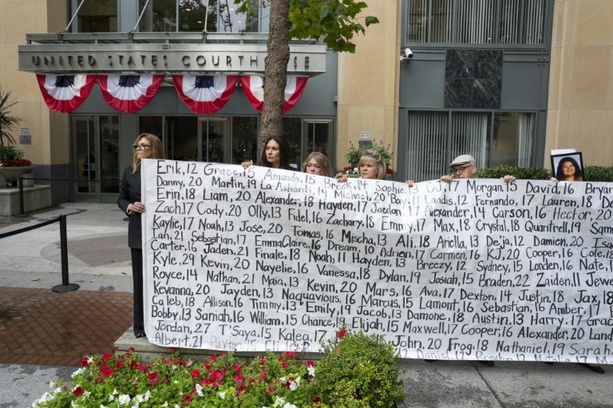 UNITED STATES COURTHOUSE
Erik, 12 Grace, 15 Amanda, 15 Brook, 14 Sophie, CJ, 17 Morgan, 15 David, 16 Bryan
Danny, 20 Martin, 19 La 20 Michael, 20 Bay, 11 Landis, 12 Fernando, 17 Lauren, 18
Erin, 18 Liam, 20 Alexander, 18 Hayden, 17 Jaedon, 17 Alexander, 14 Carson, 16 Hector, 20
Zach, 17 Cody, 20 Olly, 13 Fidel, 16 Zachary, 18 Emily, 17 Max, 18 Crystal, 18 Quantrell, 19 Sam
Kaylie, 17 Noah, 13 Jose, 20 Tomas, 16 Mischa, 13 Ali, 18 Ariella, 13 Deja, 12 Damien, 20
Ian, 21 Sebastian, 17 EmmaClaire, 16 Dream, 10 Adren, 17 Carmen, 16 KJ, 20 Cooper, 16 Cole,
Carter, 16 Jaden, 21 Finale, 18 Noah, 11 Hayden, 13 Breezy, 12 Sydney, 15 Landen, 16 Nate,
Kyle, 29 Kevin, 20 Nayelie, 16 Vanessa, 18 Dylan, 19 Josiah, 15 Braden, 22 Zaiden, 11
Royce, 14 Nathan, 21 Maia, 13 Kevin, 20 Mars, 16 Ava, 17 Dexton, 14 Justin, 18 Jax,
Kevanna, 20 Jayden, 13 Naquavious, 16 Marcus, 15 Lamont, 16 Sebastian, 16 Amber, 17
Caleb, 18 Allison, 16 Timmy, 13 Emily, 19 Jacob, 13 Damone, 18 Austin, 13 Harry, 17 Grace
Bobby, 13 Saniah, 16 William, 15 Chance, 19 Elijah, 15 Maxwell, 17 Cooper, 16 Alexander, 20 Land
Jordan, 27 T'Saya, 15 Kaleq, 17 John, 20 Frog, 18 Nathaniel, 19 Sarah
Albert, 21